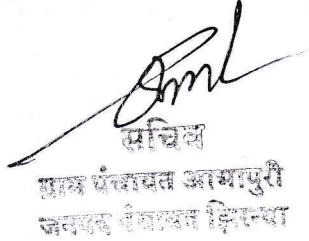 सचिव
ग्राम पंचायत आभापुरी
जनपद पंचायत झिरन्या